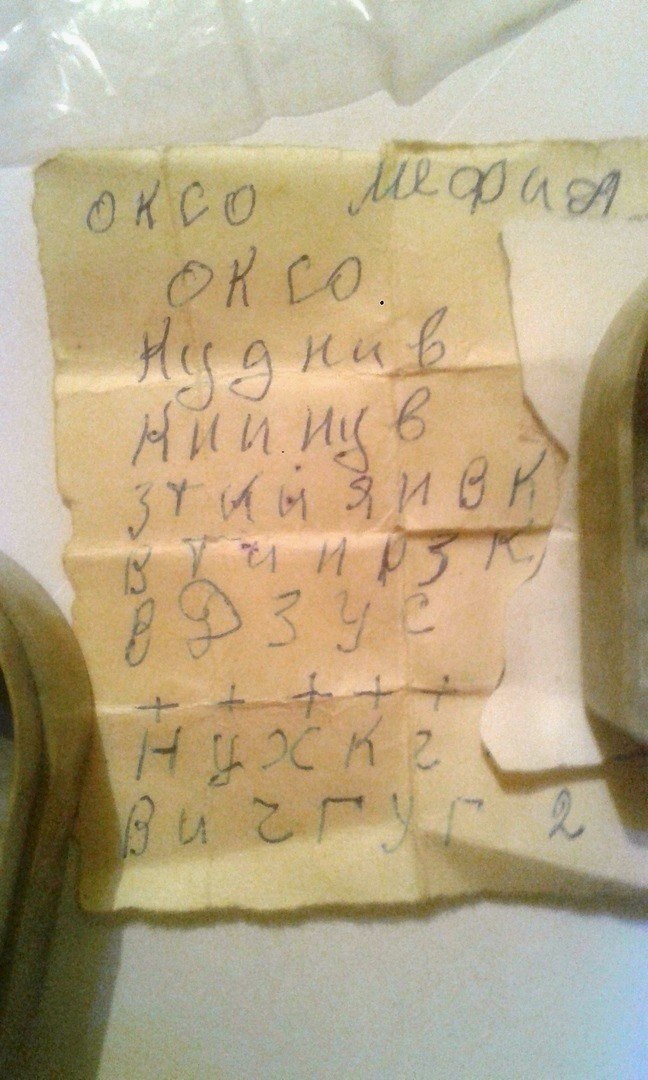 ОКСО МЕФИ
ОКСО.
НУДНИВ
КИИНУВ
ЗТКИЯНВК
ВТИНРЗК
ВДЗУС
+ + + + +
НУХКГ
ВИЧГУГ 2